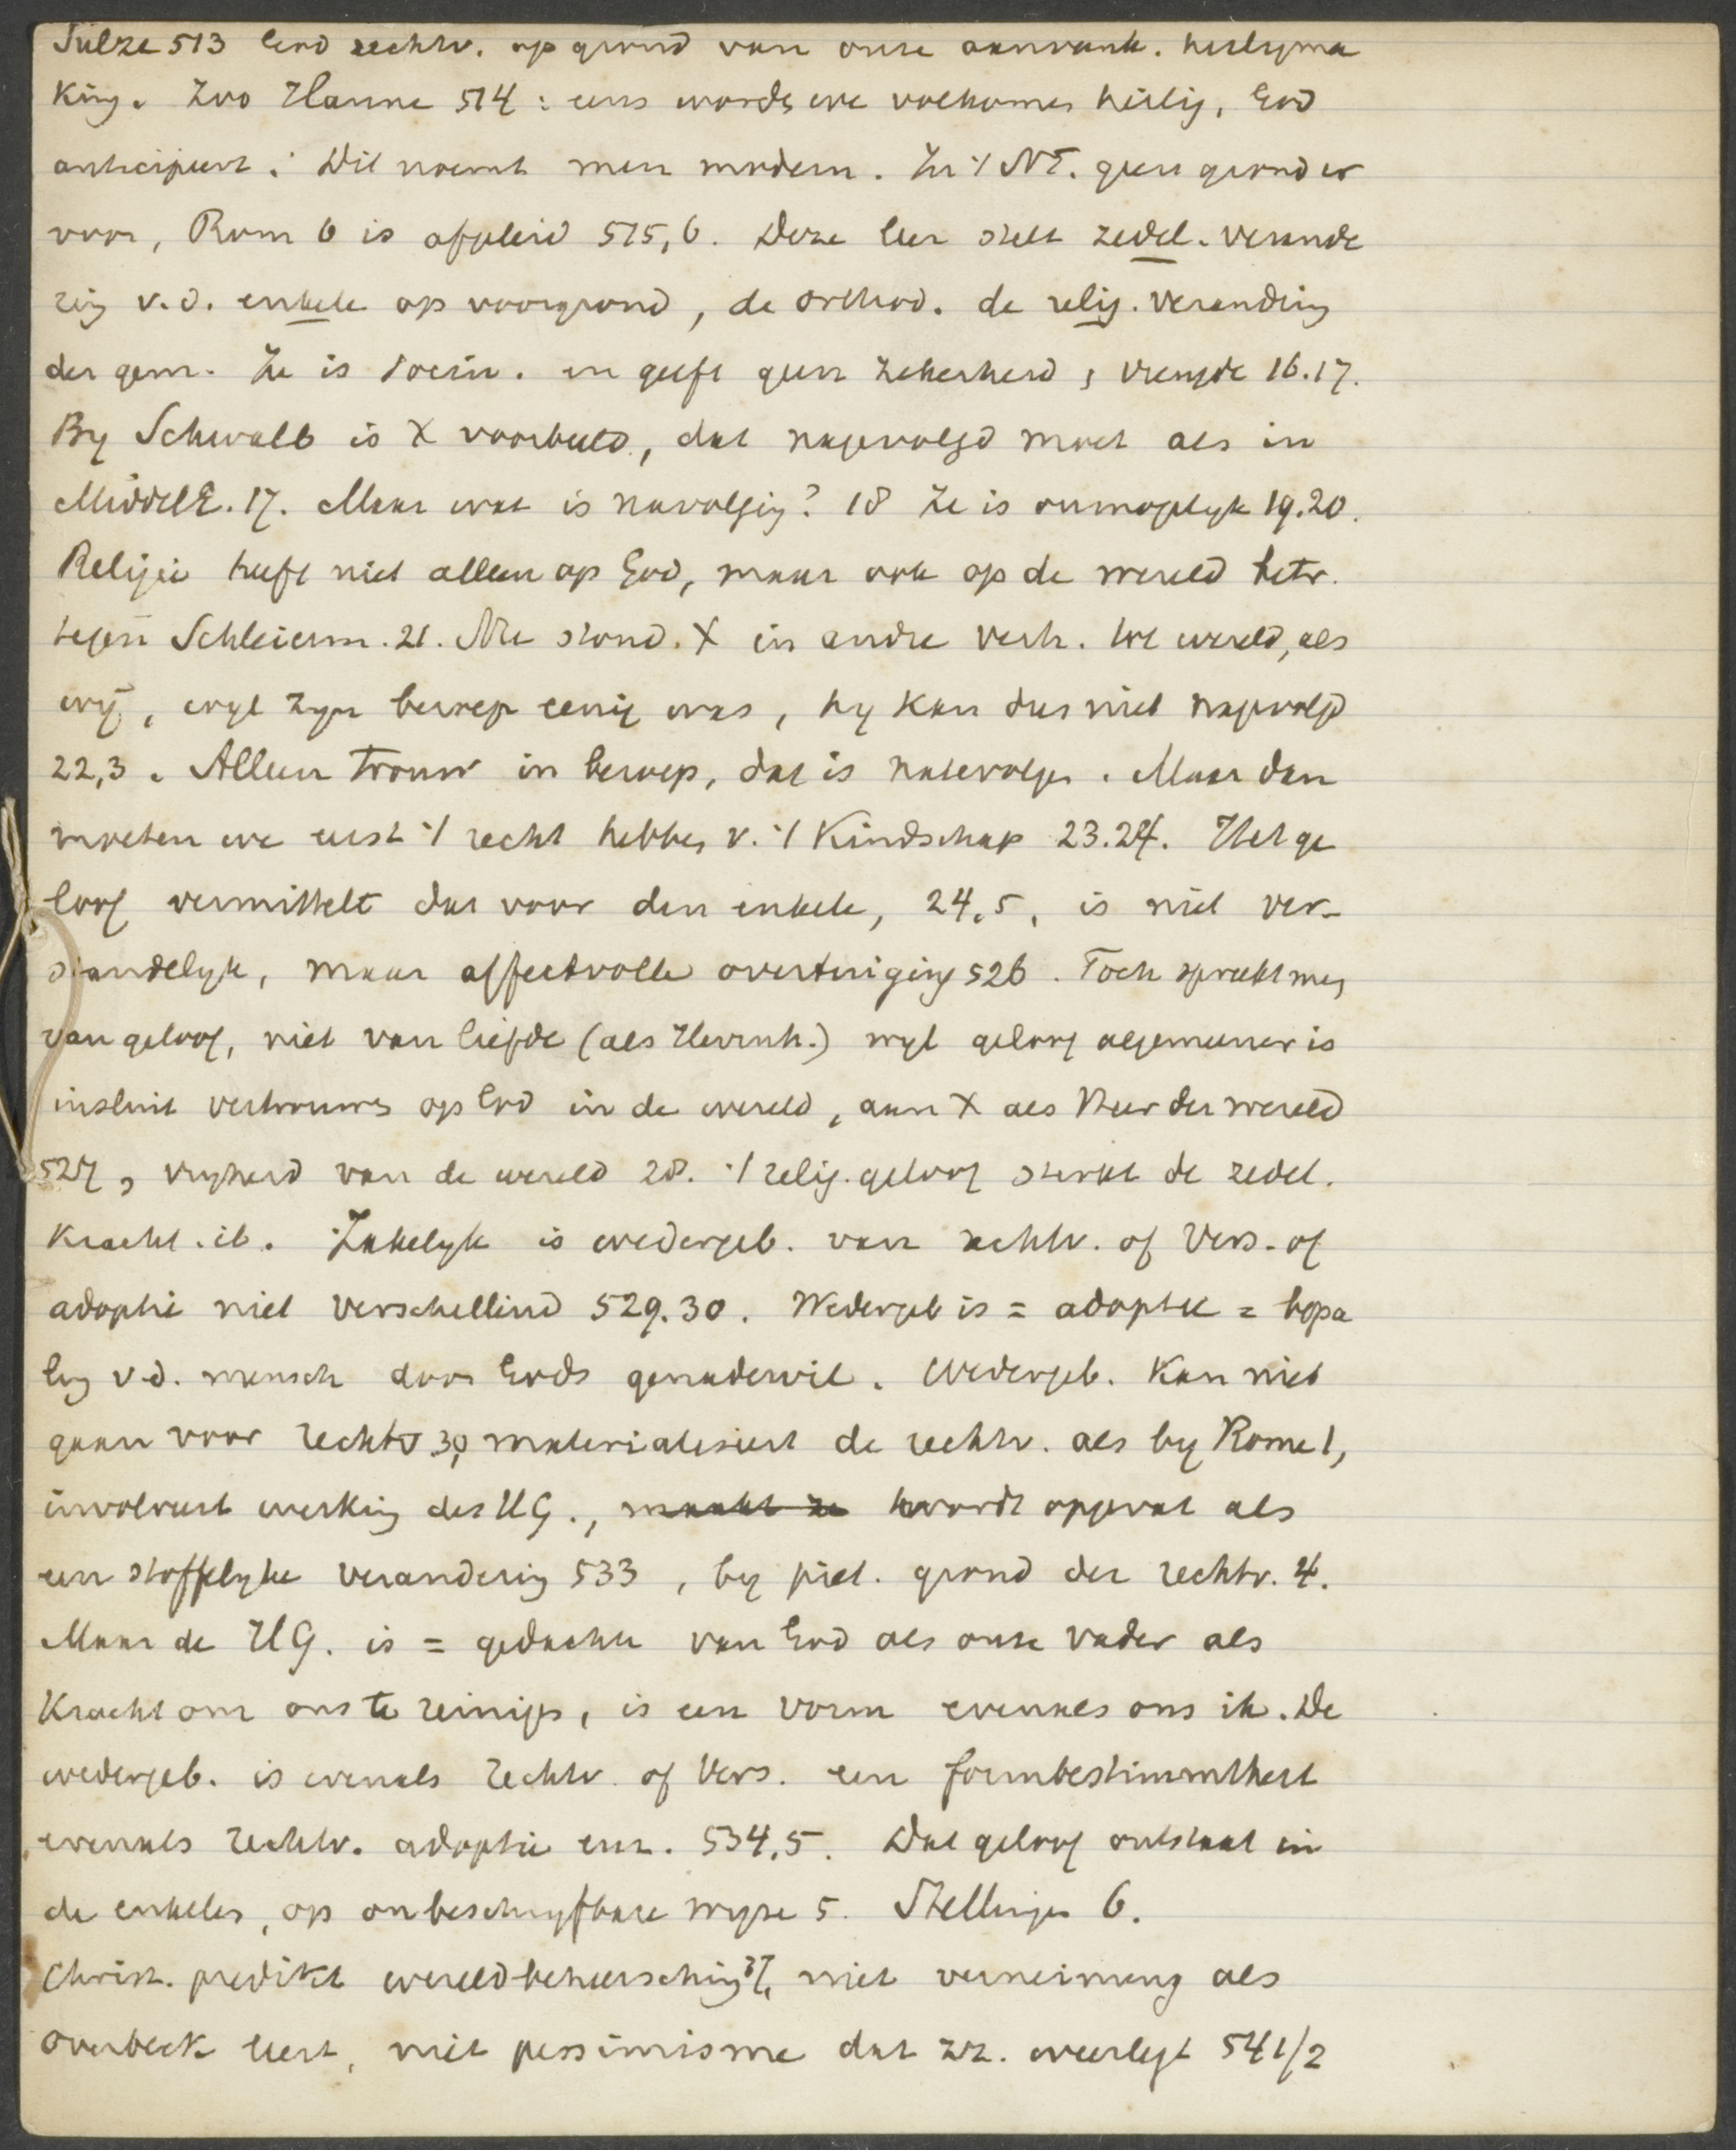 Sulze 513 God rechtv. op grond van onze aanvank. heiligma
king. Zoo Hanne 514 : eens worden we volkomen heilig, God
anticipeert. Dit noemt men modern. In 't NT. geen grond er
voor, Rom 6 is afgeleid 515,6. Deze leer stelt zedel. verande
ring v.d. enkele op voorgrond, de orthod. de relig. verandring
der gem. Ze is socin. en geeft geen zekerheid, vreugde 16.17.
By Schwalb is X voorbeeld, dat nagevolgd moet als in
MiddelE. 17. Maar wat is navolging? 18 Ze is onmogelyk 19.20.
Religie heeft niet alleen op God, maar ook op de wereld betr.
tegen Schleierm. 21. Nu stond X in andre verh. tot wereld, als
wij, wyl zyn beroep eenig was, hy kan dus niet nagevolgd
22,3. Alleen trouw in beroep, dat is navolgen. Maar dan
moeten we eerst 't recht hebben v. 't Kindschap 23.24. Het ge
loof vermittelt dat voor den enkele, 24.5, is niet ver-
standelyk, maar affectvolle overtuiging 526. Toch spreekt men
van geloof, niet van liefde (als Herrnh.) wyl geloof algemeener is
insluit vertrouwen op God in de wereld, aan X als Heer der wereld
527, vryheid van de wereld 28. 't relig. geloof sterkt de zedel.
kracht. ib. Zakelyk is wedergeb. van rechtv. of Vers. of
adoptie niet verschillend 529.30. Wedergeb is = adoptie = bepa
ling v.d. mensch door Gods genadewil. Wedergeb. kan niet
gaan voor rechtv 30, materialiseert de rechtv. als by Rome 1,
involveert werking des HG., maakt ze wordt opgevat als
een stoffelyke verandering 533, by piet. grond der rechtv. 4.
Maar de HG. is = gedachte van God als onze Vader als
Kracht om ons te reinigen, is een vorm evenals ons ik. De
wedergeb. is evenals rechtv of Vers. een formbestimmtheit
evenals rechtv. adoptie enz. 534.5. Dat geloof ontstaat in
de enkelen, op onbeschryfbare wyze 5. Stellingen 6.
Christ. predikt wereldbeheersching 37, niet verneinung als
Overbeck leert, niet pessimisme dat zz. weerlegt 541/2